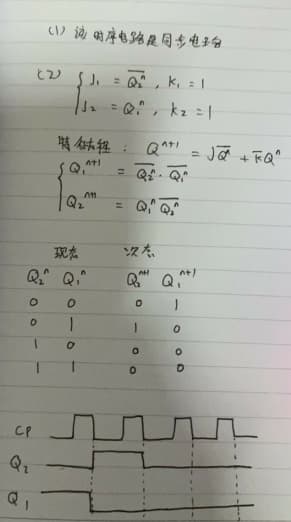 (1) 该时序电路是同步电路
(2) { J₁ = \overline{Q₂ⁿ} , K₁ = 1
J₂ = Q₁ⁿ , K₂ = 1
特征方程 : Qⁿ⁺¹ = J\overline{Qⁿ} + \overline{K}Qⁿ
{ Q₁ⁿ⁺¹ = \overline{Q₂ⁿ} · \overline{Q₁ⁿ}
Q₂ⁿ⁺¹ = Q₁ⁿ \overline{Q₂ⁿ}
现态 次态
Q₂ⁿ Q₁ⁿ Q₂ⁿ⁺¹ Q₁ⁿ⁺¹
0 0 0 1
0 1 1 0
1 0 0 0
1 1 0 0
CP
Q₂
Q₁